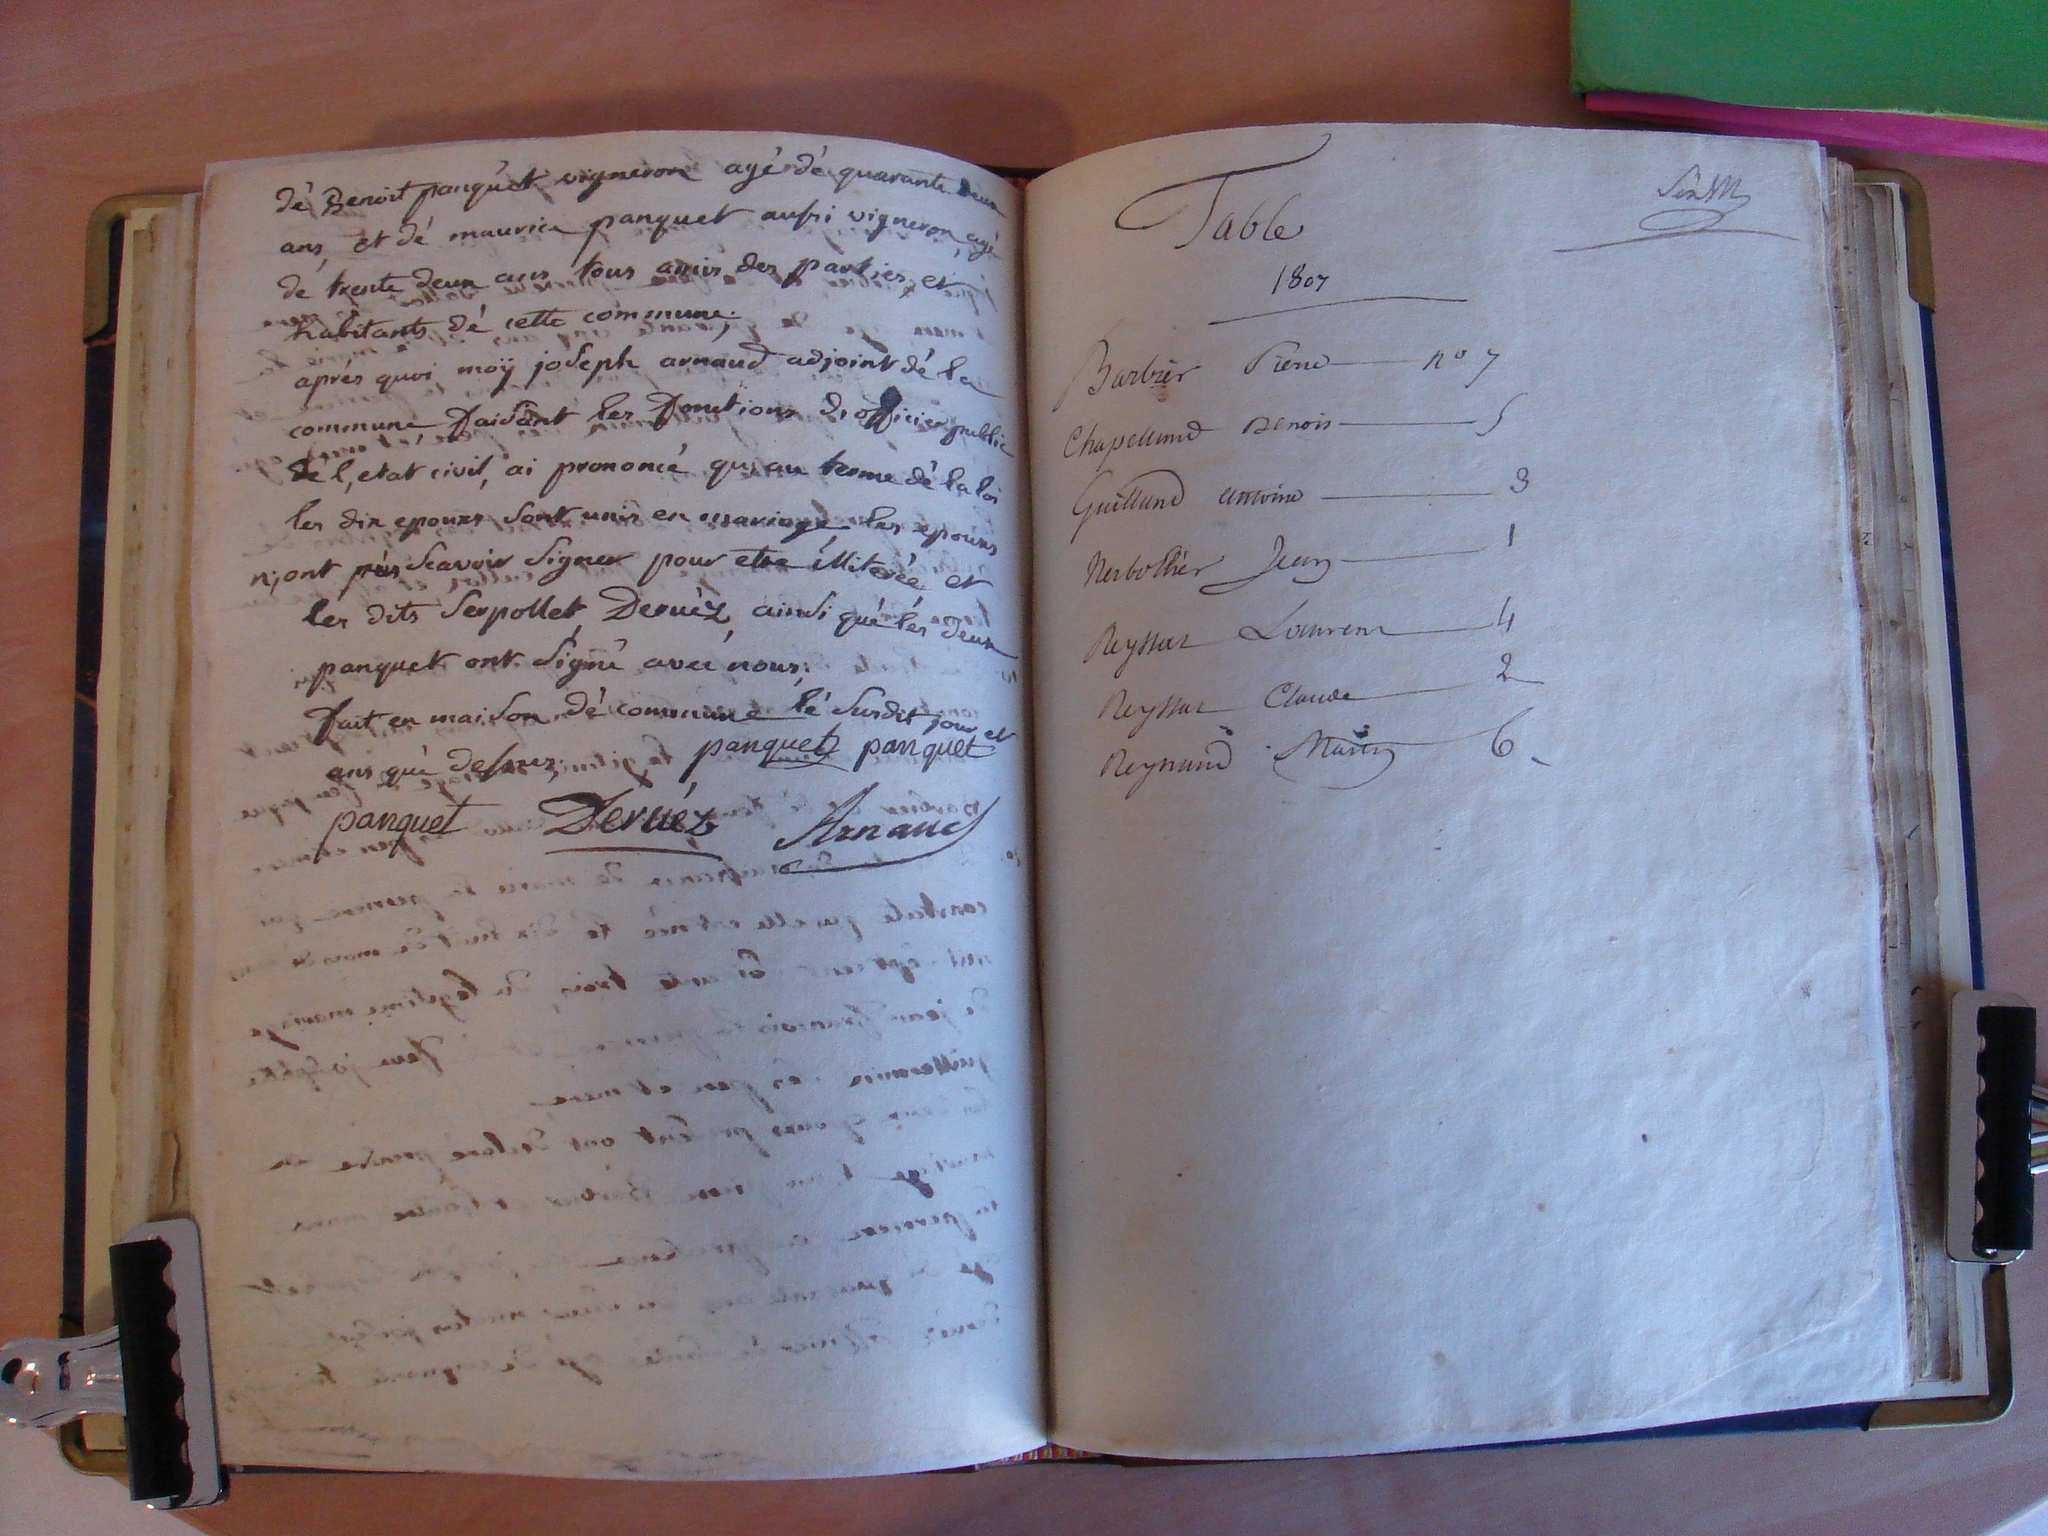 dé Benoit panquet vigneron agé dé quarante deux
ans, et dé maurice panquet aussi vigneron, agé
dé trente deux ans tous amis des parties, et
habitants dé cette commune;
aprés quoi moÿ joseph arnaud adjoint dé la
commune faisant les fonctions d,officier public
dé l,etat civil, ai prononcé qu,au terme dé la loi
les dix epoux sont unis en mariage les epoux
n,ont pas scavoir signer pour etre illiterée et
les dits Serpollet, Deruéz, ainsi qué les deux
panquet ont signé avec nous;
fait en maison dé commune lé susdit jour et
ans qué dessus; panquet panquet
panquet Deruéz Arnaud
Table
1807
Barbier Pierre n° 7
Chapelland Benois 5
Guilland antoine 3
Nerbollier Jean 1
Reyssat Laurent 4
Reyssat Claude 2
Reynaud Martin 6